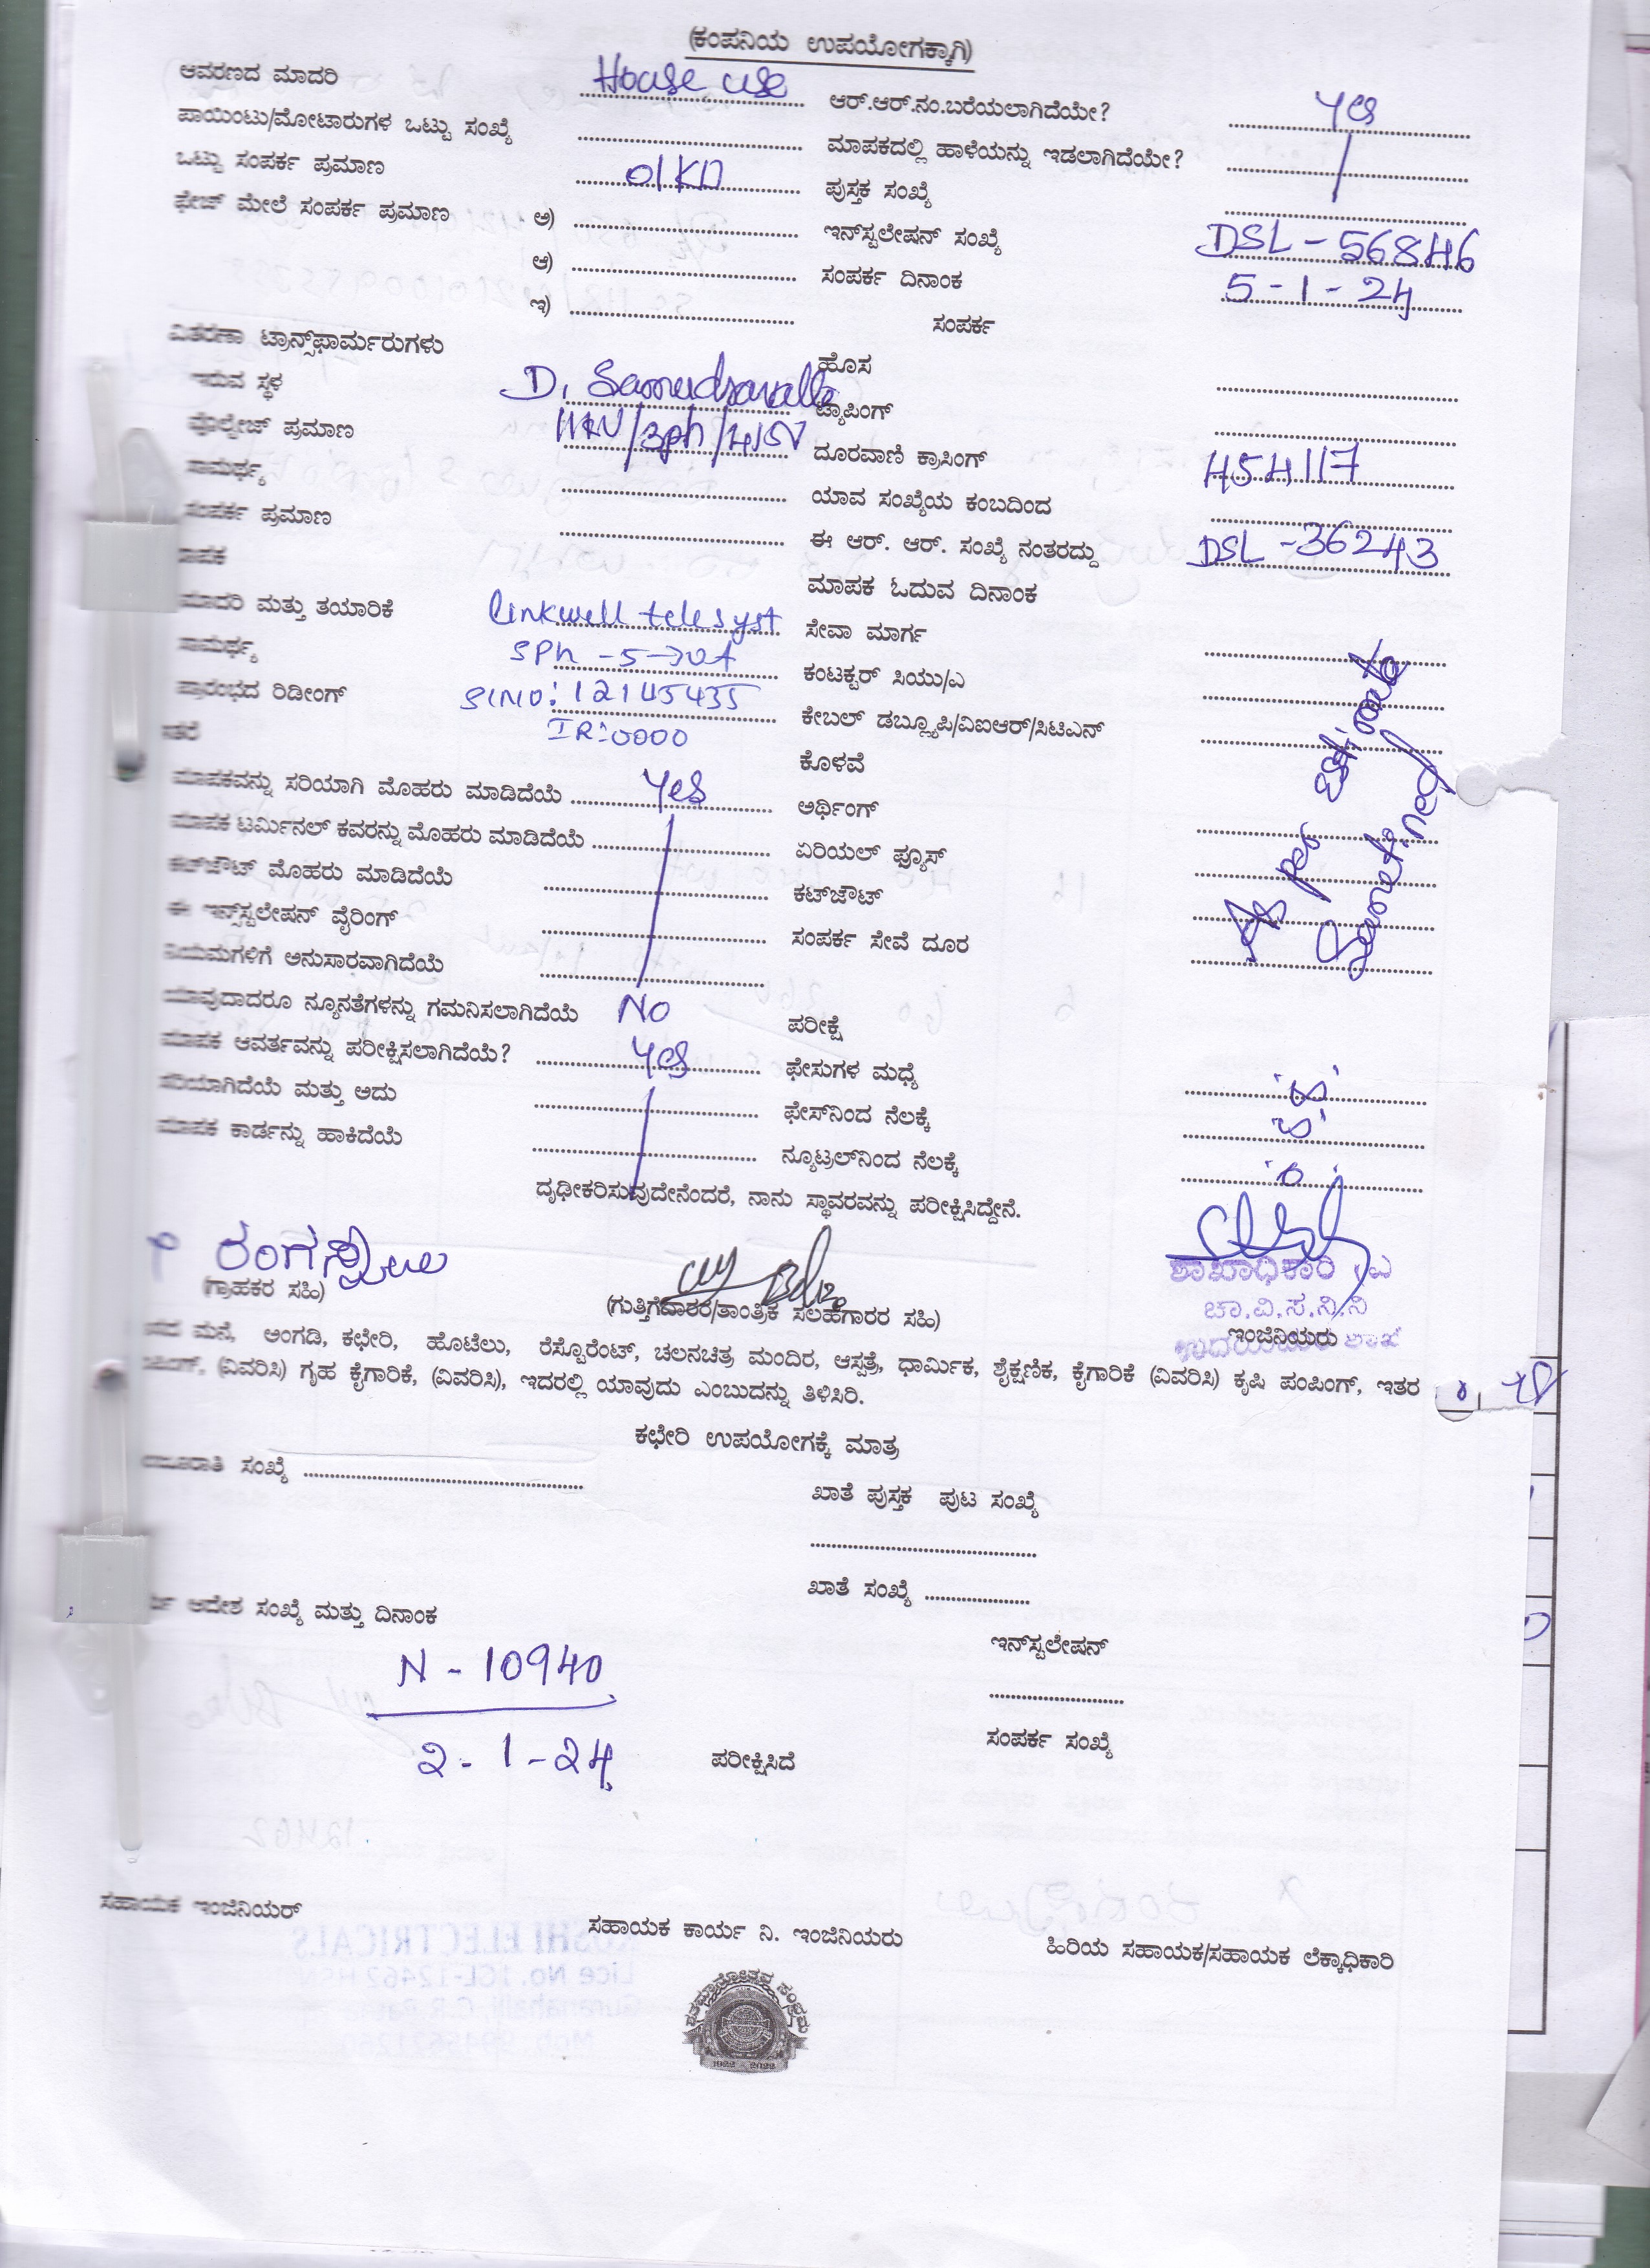 (ಕಂಪನಿಯ ಉಪಯೋಗಕ್ಕಾಗಿ)
ಆವರಣದ ಮಾದರಿ House use
ಆರ್.ಆರ್.ನಂ.ಬರೆಯಲಾಗಿದೆಯೇ? yes
ಪಾಯಿಂಟು/ಮೋಟಾರುಗಳ ಒಟ್ಟು ಸಂಖ್ಯೆ
ಮಾಪಕದಲ್ಲಿ ಹಾಳೆಯನ್ನು ಇಡಲಾಗಿದೆಯೇ?
ಒಟ್ಟು ಸಂಪರ್ಕ ಪ್ರಮಾಣ 01KD
ಪುಸ್ತಕ ಸಂಖ್ಯೆ
ಫೇಜ್ ಮೇಲೆ ಸಂಪರ್ಕ ಪ್ರಮಾಣ ಅ)
ಇನ್‌ಸ್ಟಲೇಷನ್ ಸಂಖ್ಯೆ DSL-56846
ಆ)
ಸಂಪರ್ಕ ದಿನಾಂಕ 5-1-24
ಇ)
ಸಂಪರ್ಕ
ವಿತರಣಾ ಟ್ರಾನ್ಸ್‌ಫಾರ್ಮರುಗಳು
ಹೊಸ
ಇರುವ ಸ್ಥಳ D. Samudravalli
ಟ್ಯಾಪಿಂಗ್
ವೊಲ್ಟೇಜ್ ಪ್ರಮಾಣ 11KV/3ph/415V
ದೂರವಾಣಿ ಕ್ರಾಸಿಂಗ್ 454117
ಸಾಮರ್ಥ್ಯ
ಯಾವ ಸಂಖ್ಯೆಯ ಕಂಬದಿಂದ
ಸಂಪರ್ಕ ಪ್ರಮಾಣ
ಈ ಆರ್. ಆರ್. ಸಂಖ್ಯೆ ನಂತರದ್ದು DSL-36243
ಮಾಪಕ
ಮಾಪಕ ಓದುವ ದಿನಾಂಕ
ಮಾದರಿ ಮತ್ತು ತಯಾರಿಕೆ Linkwell telesyst
ಸೇವಾ ಮಾರ್ಗ
ಸಾಮರ್ಥ್ಯ SPh -5->0A
ಕಂಟಕ್ಟರ್ ಸಿಯು/ಎ
ಪ್ರಾರಂಭದ ರಿಡೀಂಗ್ SlNo: 12145435
ಕೇಬಲ್ ಡಬ್ಲ್ಯೂಪಿ/ವಿಐಆರ್/ಸಿಟಿಎನ್
ಇತರೆ IR:0000
ಕೊಳವೆ
ಮಾಪಕವನ್ನು ಸರಿಯಾಗಿ ಮೊಹರು ಮಾಡಿದೆಯೆ Yes
ಅರ್ಥಿಂಗ್
ಮಾಪಕ ಟರ್ಮಿನಲ್ ಕವರನ್ನು ಮೊಹರು ಮಾಡಿದೆಯೆ
ಏರಿಯಲ್ ಫ್ಯೂಸ್
ಕಟ್‌ಔಟ್ ಮೊಹರು ಮಾಡಿದೆಯೆ
ಕಟ್‌ಔಟ್
ಈ ಇನ್ಸ್‌ಸ್ಟಲೇಷನ್ ವೈರಿಂಗ್
ಸಂಪರ್ಕ ಸೇವೆ ದೂರ
ನಿಯಮಗಳಿಗೆ ಅನುಸಾರವಾಗಿದೆಯೆ
As per Estimate
ಯಾವುದಾದರೂ ನ್ಯೂನತೆಗಳನ್ನು ಗಮನಿಸಲಾಗಿದೆಯೆ NO
ಪರೀಕ್ಷೆ
ಮಾಪಕ ಆವರ್ತವನ್ನು ಪರೀಕ್ಷಿಸಲಾಗಿದೆಯೆ? yes
ಫೇಸುಗಳ ಮಧ್ಯೆ
ಸರಿಯಾಗಿದೆಯೆ ಮತ್ತು ಅದು
ಫೇಸ್‌ನಿಂದ ನೆಲಕ್ಕೆ
ಮಾಪಕ ಕಾರ್ಡನ್ನು ಹಾಕಿದೆಯೆ
ನ್ಯೂಟ್ರಲ್‌ನಿಂದ ನೆಲಕ್ಕೆ
ದೃಢೀಕರಿಸುವುದೇನೆಂದರೆ, ನಾನು ಸ್ಥಾವರವನ್ನು ಪರೀಕ್ಷಿಸಿದ್ದೇನೆ.
(ಗ್ರಾಹಕರ ಸಹಿ)
(ಗುತ್ತಿಗೆದಾರರ/ತಾಂತ್ರಿಕ ಸಲಹೆಗಾರರ ಸಹಿ)
ಶಾಖಾಧಿಕಾರಿ
ಚಾ.ವಿ.ಸ.ನಿ.ನಿ
ಇಂಜಿನಿಯರು
ಮನೆ, ಅಂಗಡಿ, ಕಛೇರಿ, ಹೊಟೆಲು, ರೆಸ್ಟೊರೆಂಟ್, ಚಲನಚಿತ್ರ ಮಂದಿರ, ಆಸ್ಪತ್ರೆ, ಧಾರ್ಮಿಕ, ಶೈಕ್ಷಣಿಕ, ಕೈಗಾರಿಕೆ (ವಿವರಿಸಿ) ಕೃಷಿ ಪಂಪಿಂಗ್, ಇತರ
(ವಿವರಿಸಿ) ಗೃಹ ಕೈಗಾರಿಕೆ, (ವಿವರಿಸಿ), ಇದರಲ್ಲಿ ಯಾವುದು ಎಂಬುದನ್ನು ತಿಳಿಸಿರಿ.
ಕಛೇರಿ ಉಪಯೋಗಕ್ಕೆ ಮಾತ್ರ
ಸಂಖ್ಯೆ
ಖಾತೆ ಪುಸ್ತಕ ಪುಟ ಸಂಖ್ಯೆ
ಖಾತೆ ಸಂಖ್ಯೆ
ಆದೇಶ ಸಂಖ್ಯೆ ಮತ್ತು ದಿನಾಂಕ
ಇನ್‌ಸ್ಟಲೇಷನ್
N - 10940
ಸಂಪರ್ಕ ಸಂಖ್ಯೆ
2-1-24
ಪರೀಕ್ಷಿಸಿದೆ
ಸಹಾಯಕ ಇಂಜಿನಿಯರ್
ಸಹಾಯಕ ಕಾರ್ಯ ನಿ. ಇಂಜಿನಿಯರು
ಹಿರಿಯ ಸಹಾಯಕ/ಸಹಾಯಕ ಲೆಕ್ಕಾಧಿಕಾರಿ
1922 - 2022